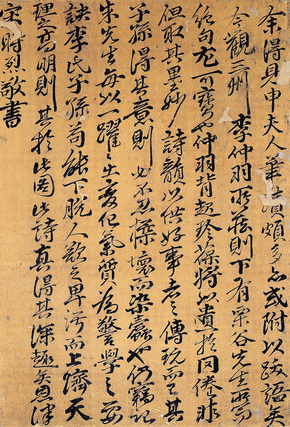 余得見申夫人筆蹟頗多也或附以跋語矣
今觀三州李仲羽所藏則下有栗谷先生所寫
絶句尤可寶也仲羽背將以遺於同非
但取其墨妙詩韻以供好事者之傳玩而已其
子孫得其意則必不忍壞而染蠹也仍竊記
朱先生每以一躍躍出變化氣質爲警學之要
訣李氏子孫苟能下脫人欲之卑汚而上濟天
理之高明則其於此圖此詩真得其深趣矣恩津
宋時烈敬書